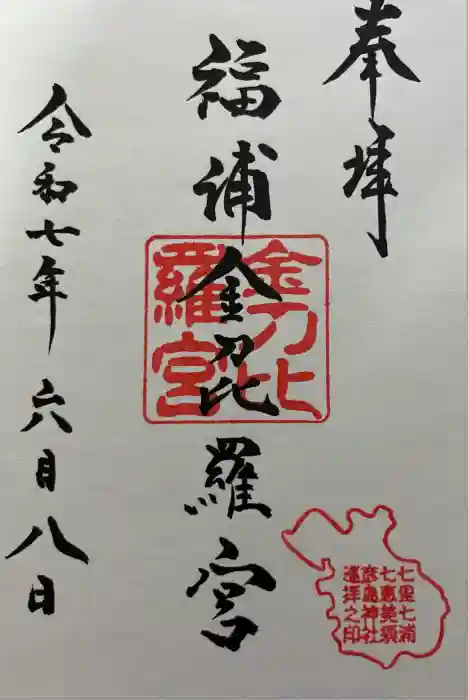 奉拝
福浦金刀比羅宮
金刀比羅宮
七里七浦
七恵美須
彦島神社
巡拝之印
令和七年六月八日